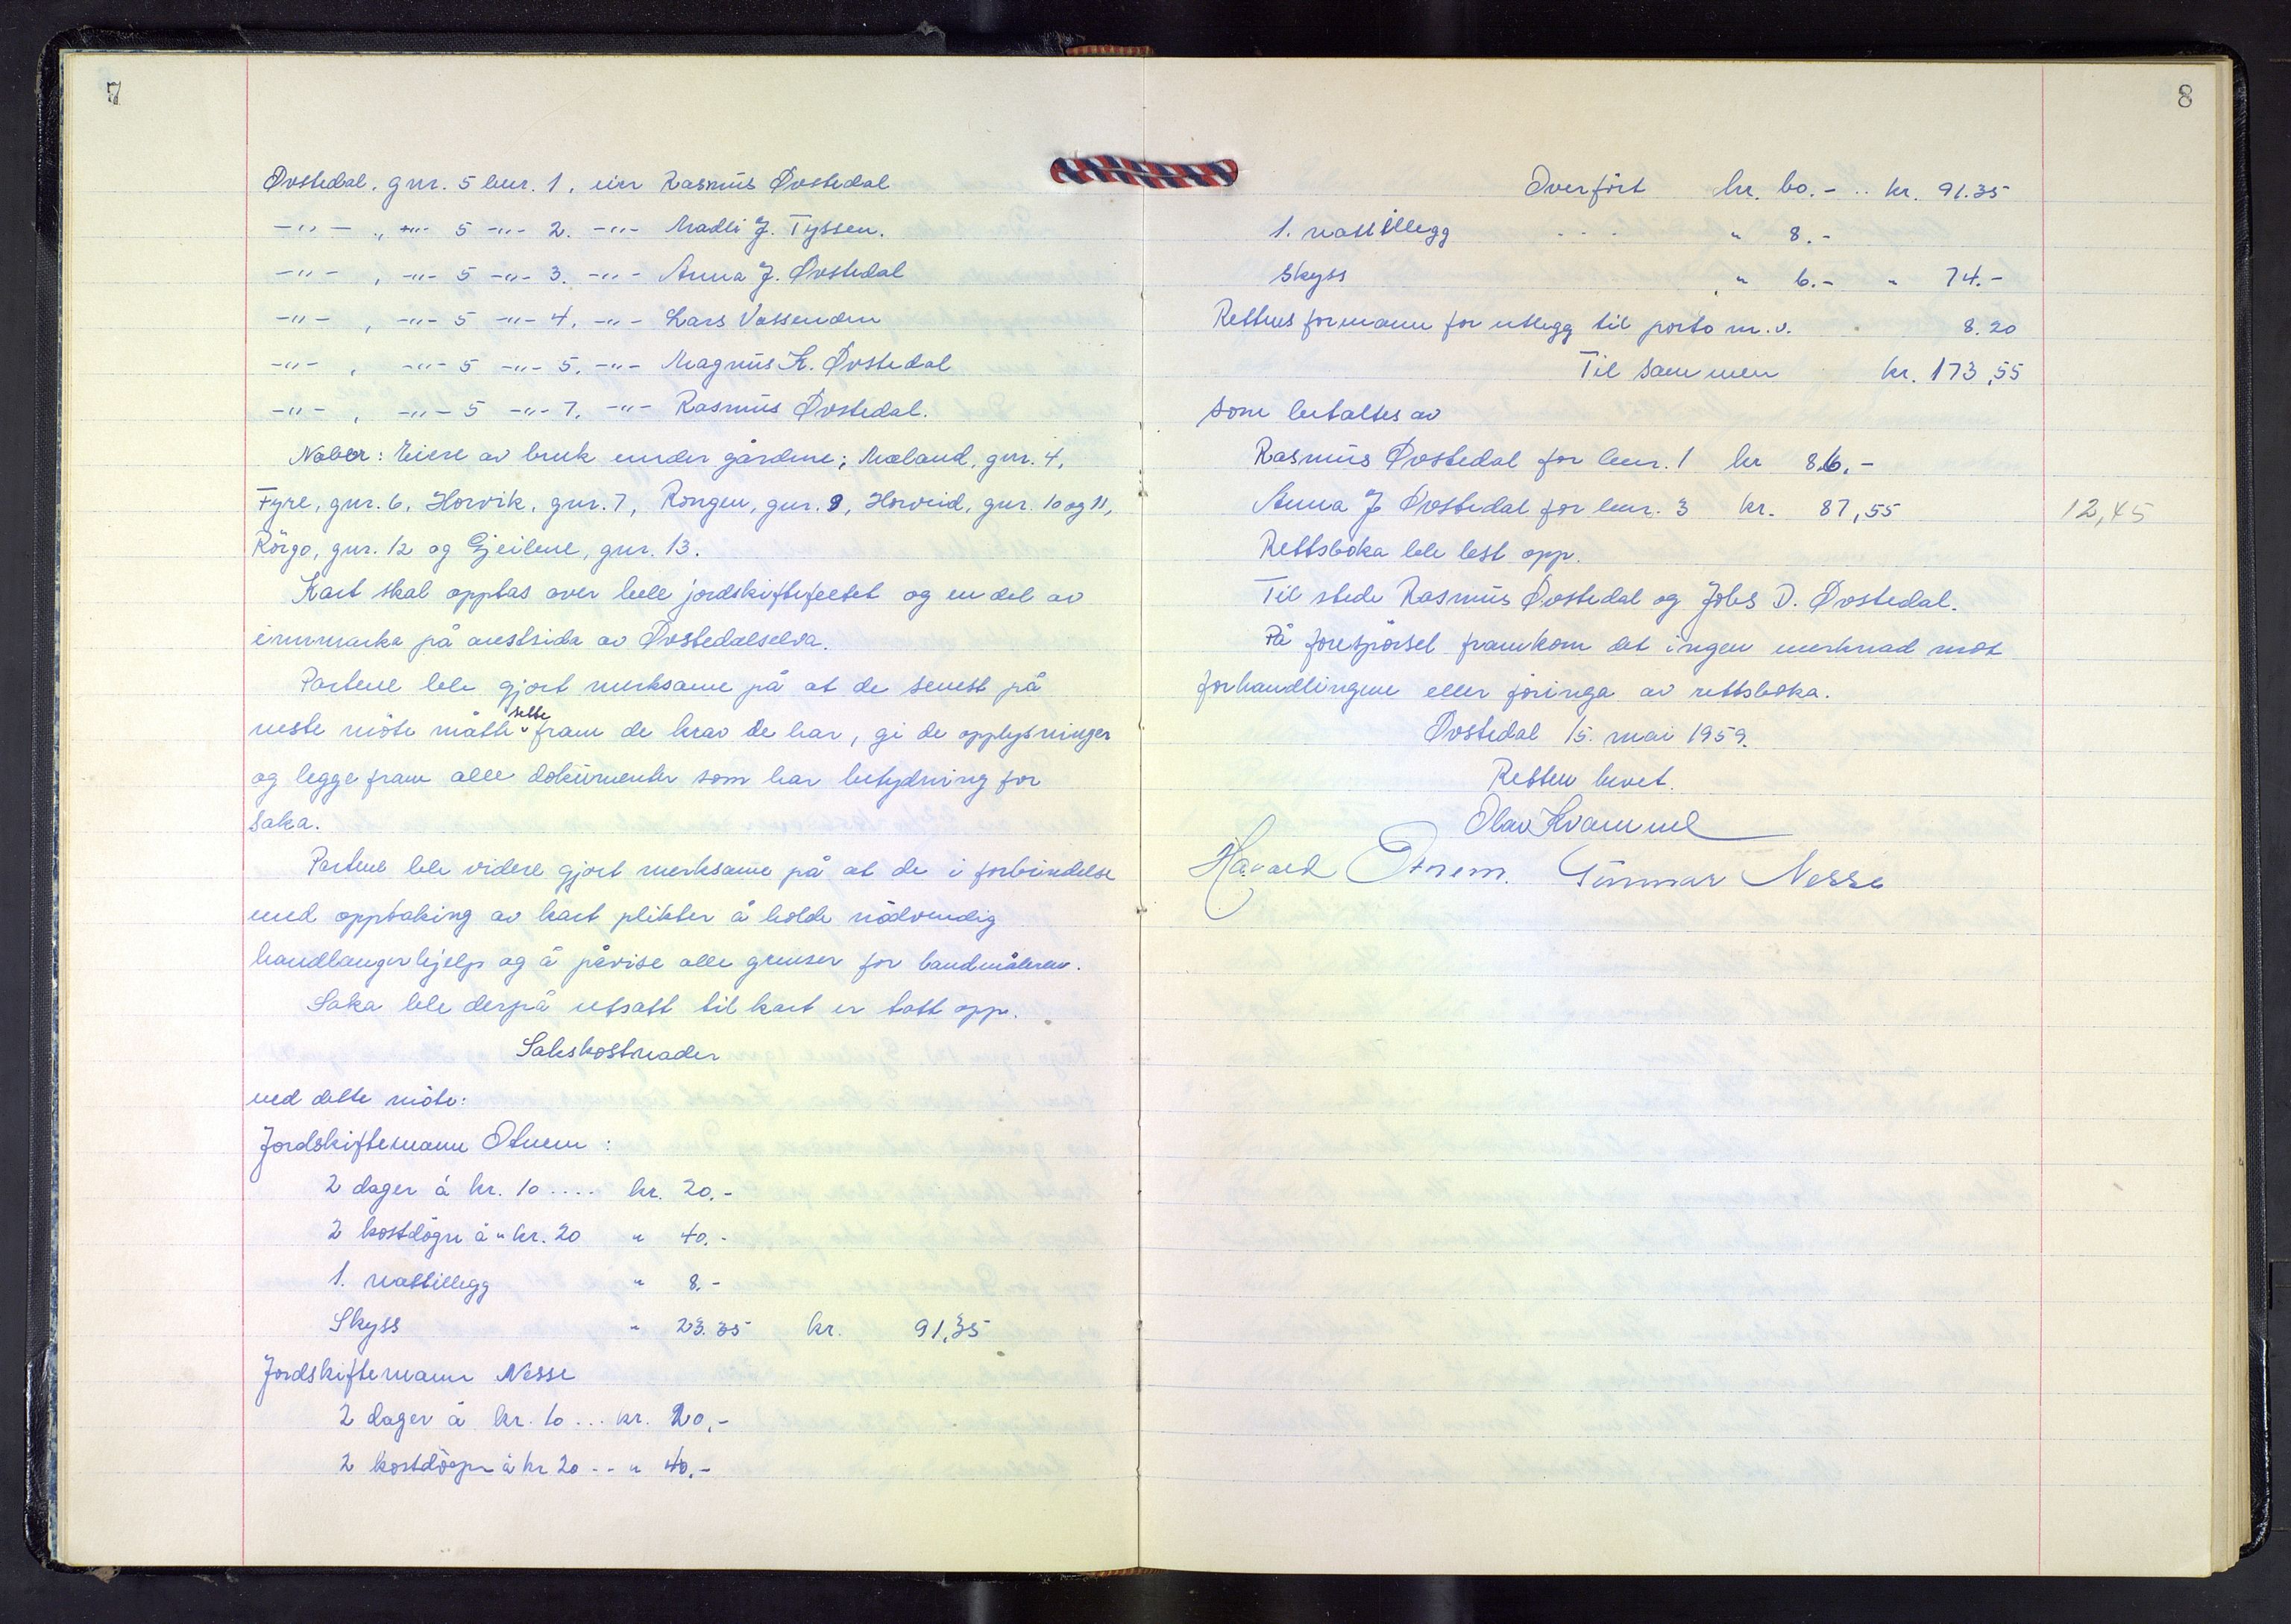 7
Øvstedal, gnr. 5 bnr. 1, eier Rasmus Øvstedal
-"- „ -"- 5 -"- 2. -"- Madli J. Tyssen.
-"- , -"- 5 -"- 3. -"- Anna J. Øvstedal
-"- , -"- 5 -"- 4. -"- Lars Vassenden
-"- , -"- 5 -"- 5. -"- Magnus K. Øvstedal
-"- , -"- 5 -"- 7. -"- Rasmus Øvstedal.
Naboer: Eiere av bruk under gårdene; Mæland, gnr. 4,
Fyre, gnr. 6, Horvik, gnr. 7, Rongen, gnr. 8, Horveid, gnr. 10 og 11,
Rörgo, gnr. 12 og Gjeilene, gnr. 13.
Kart skal opptas over hele jordskiftefeltet og en del av
innmarka på austsida av Øvstedalselva.
Partene ble gjort merksame på at de senest på
neste möte måtte sette fram de krav de har, gi de opplysninger
og legge fram alle dokumenter som har betydning for
saka.
Partene ble videre gjort merksame på at de i forbindelse
med opptaking av kart plikter å holde nödvendig
handlangerhjelp og å påvise alle grenser for landmåleren.
Saka ble derpå utsatt til kart er tatt opp.
Sakskostnader
ved dette möte:
Jordskiftemann Otnem :
2 dager á kr. 10 .... kr. 20.-
2 kostdögn á " kr. 20 " 40.-
1. nattillegg " 8.-
Skyss " 23.35 kr. 91,35
Jordskiftemann Nesse
2 dager á kr. 10 ... kr. 20,-
2 kostdögn á kr 20 .. " 40.-
8
Overfört kr. 60.- .. kr. 91.35
1. nattillegg . . . " 8.-
Skyss " 6.- " 74.-
Rettens formann for utlegg til porto m.v. 8.20
Til sammen kr. 173,55
som betaltes av
Rasmus Øvstedal for bnr. 1 kr 86.-
Anna J Øvstedal for bnr. 3 kr. 87,55
12,45
Rettsboka ble lest opp.
Til stede Rasmus Øvstedal og Johs D. Øvstedal.
På forespörsel framkom det ingen merknad mot
forhandlingene eller föringa av rettsboka.
Øvstedal 15. mai 1959.
Retten hevet.
Olav Kvammel
Håvard Otnem. Gunnar Nesse